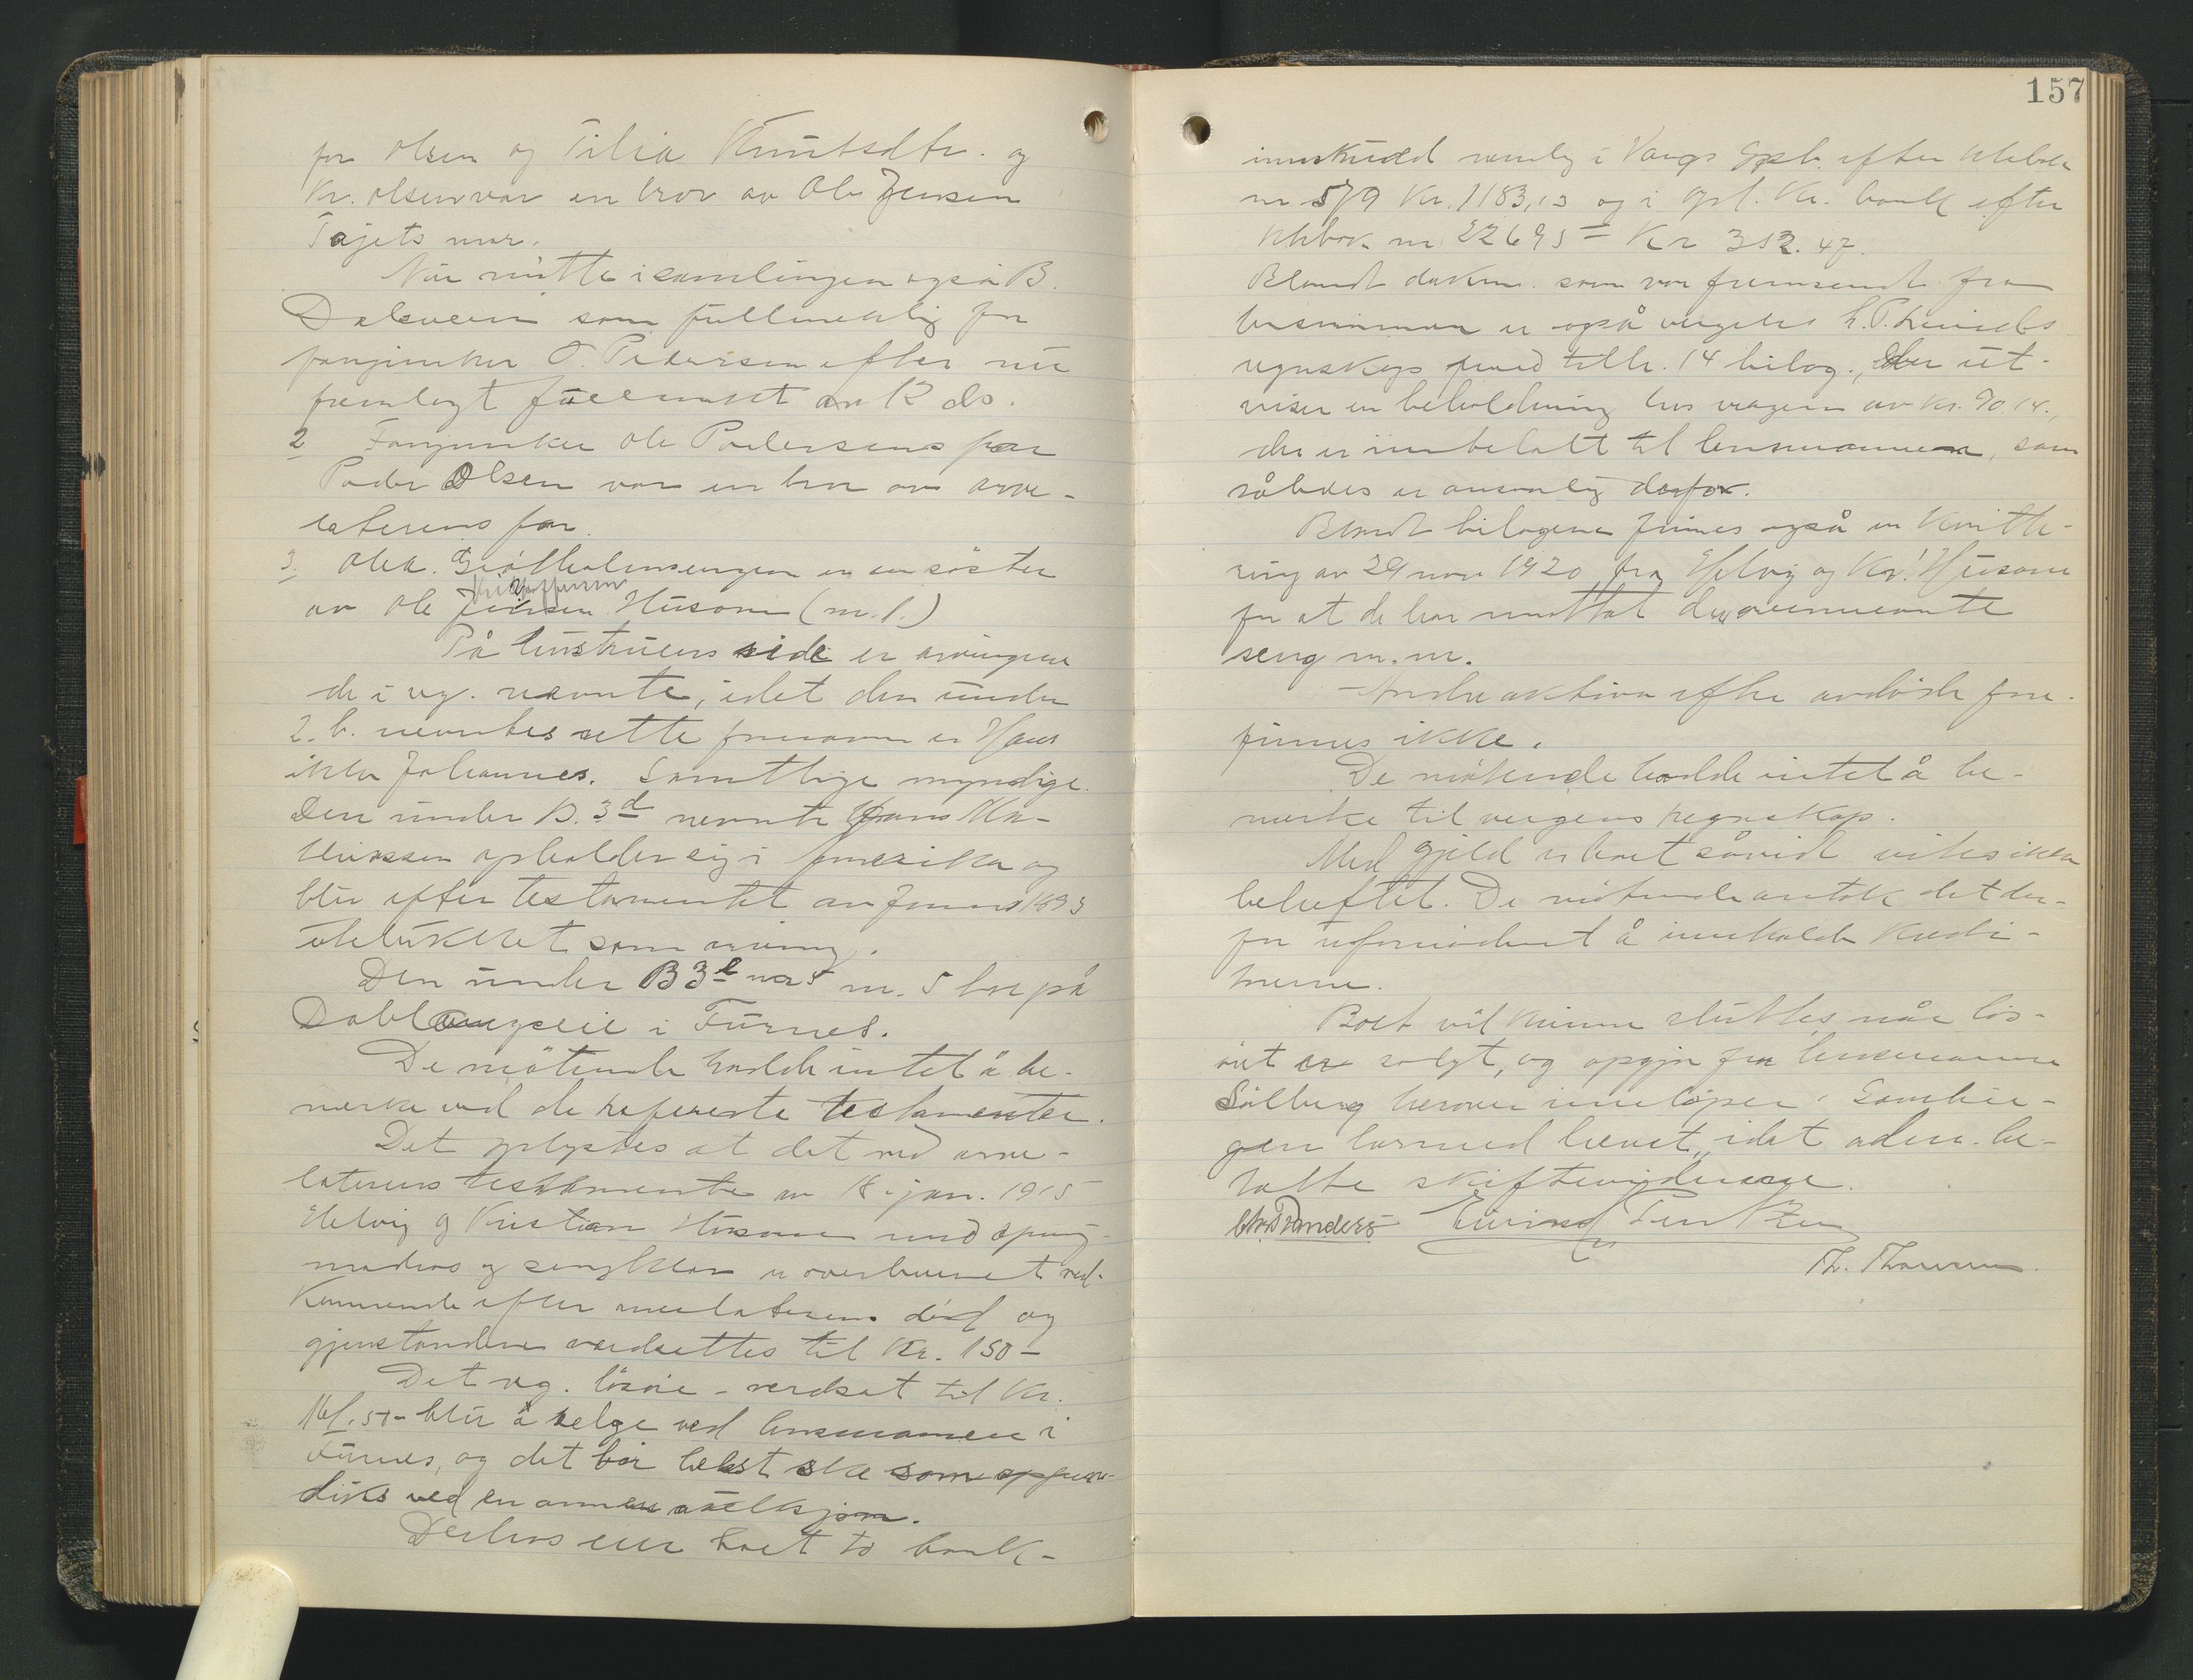 for Olsen og Tilia Knutsdtr. og
Kr. Olsen var en bror av Ole Jensen
Tajets mor.
Nu mötte i samlingen også B.
Dalsveen som fullmektig for
fanejunker O. Pedersen efter nu
fremlagt fullmakt av 12 ds.
2 Fanejunker Ole Pedersens far
Peder Olsen var en bror av arve-
laterens far.
3. Olea er en söster
av Ole Jensen Kristoffersen Husom (m.f.)
På hustruens side er arvingene
de i reg. nevnte, idet den under
2. b. nevntes rette fornavn er Hans
ikke Johannes. Samtlige myndige.
Den under B. 3d nevnte Hans Ma-
thiassen opholder sig i Amerika og
blir efter testamentet av 1893
utelukket som arving.
Den under B 3 l nr 5 m. 5 bor på
i Furnes.
De mötende hadde intet å be-
merke ved de refererte testamenter.
Det oplystes at det ved arve-
laterens testamente av 18. jan. 1915
Helvig og Kristian Husom med spring-
madras og sengklær er overlevert ved-
kommende efter arvelaterens död og
gjenstandene verdsettes til kr. 150-
Det reg. lösöre - verdsat til kr.
161.50- blir å selge ved lensmannen i
Furnes, og det bör helst ske som appen-
diks ved en annen auksjon.
Derhos eier boet to bank-
157
innskudd nemlig i Vangs Spb. efter bankbok
nr 579 kr. 1183,13 og i Opl. Kr. bank efter
bankbok nr 22695 = Kr 352.47.
Blandt dokum. som var fremsendt fra
lensmannen er også vergens
regnskap med tilh. 14 bilag, der ut-
viser en beholdning hos vergen av kr. 90.14.,
der er innbetalt til lensmannen, som
således er ansvarlig derfor.
Blandt bilagene finnes også en kvitte-
ring av 29 nov 1920 fra Helvig og Kr. Husom
for at de har mottat den ovennevnte
seng m.m.
Andre aktiva efter avdöde fore-
finnes ikke.
De mötende hadde intet å be-
merke til vergens regnskap.
Med gjeld er boet såvidt vites ikke
beheftet. De mötende antok det der-
for ufornödent å innkalde kredi-
torene.
Boet vil kunne sluttes når lös-
öret er solgt, og opgjör fra lensmannen
Solberg herover innlöper. Samlin-
gen hermed hevet, idet adm. be-
talte skiftevidnene.
Eivind
Th.